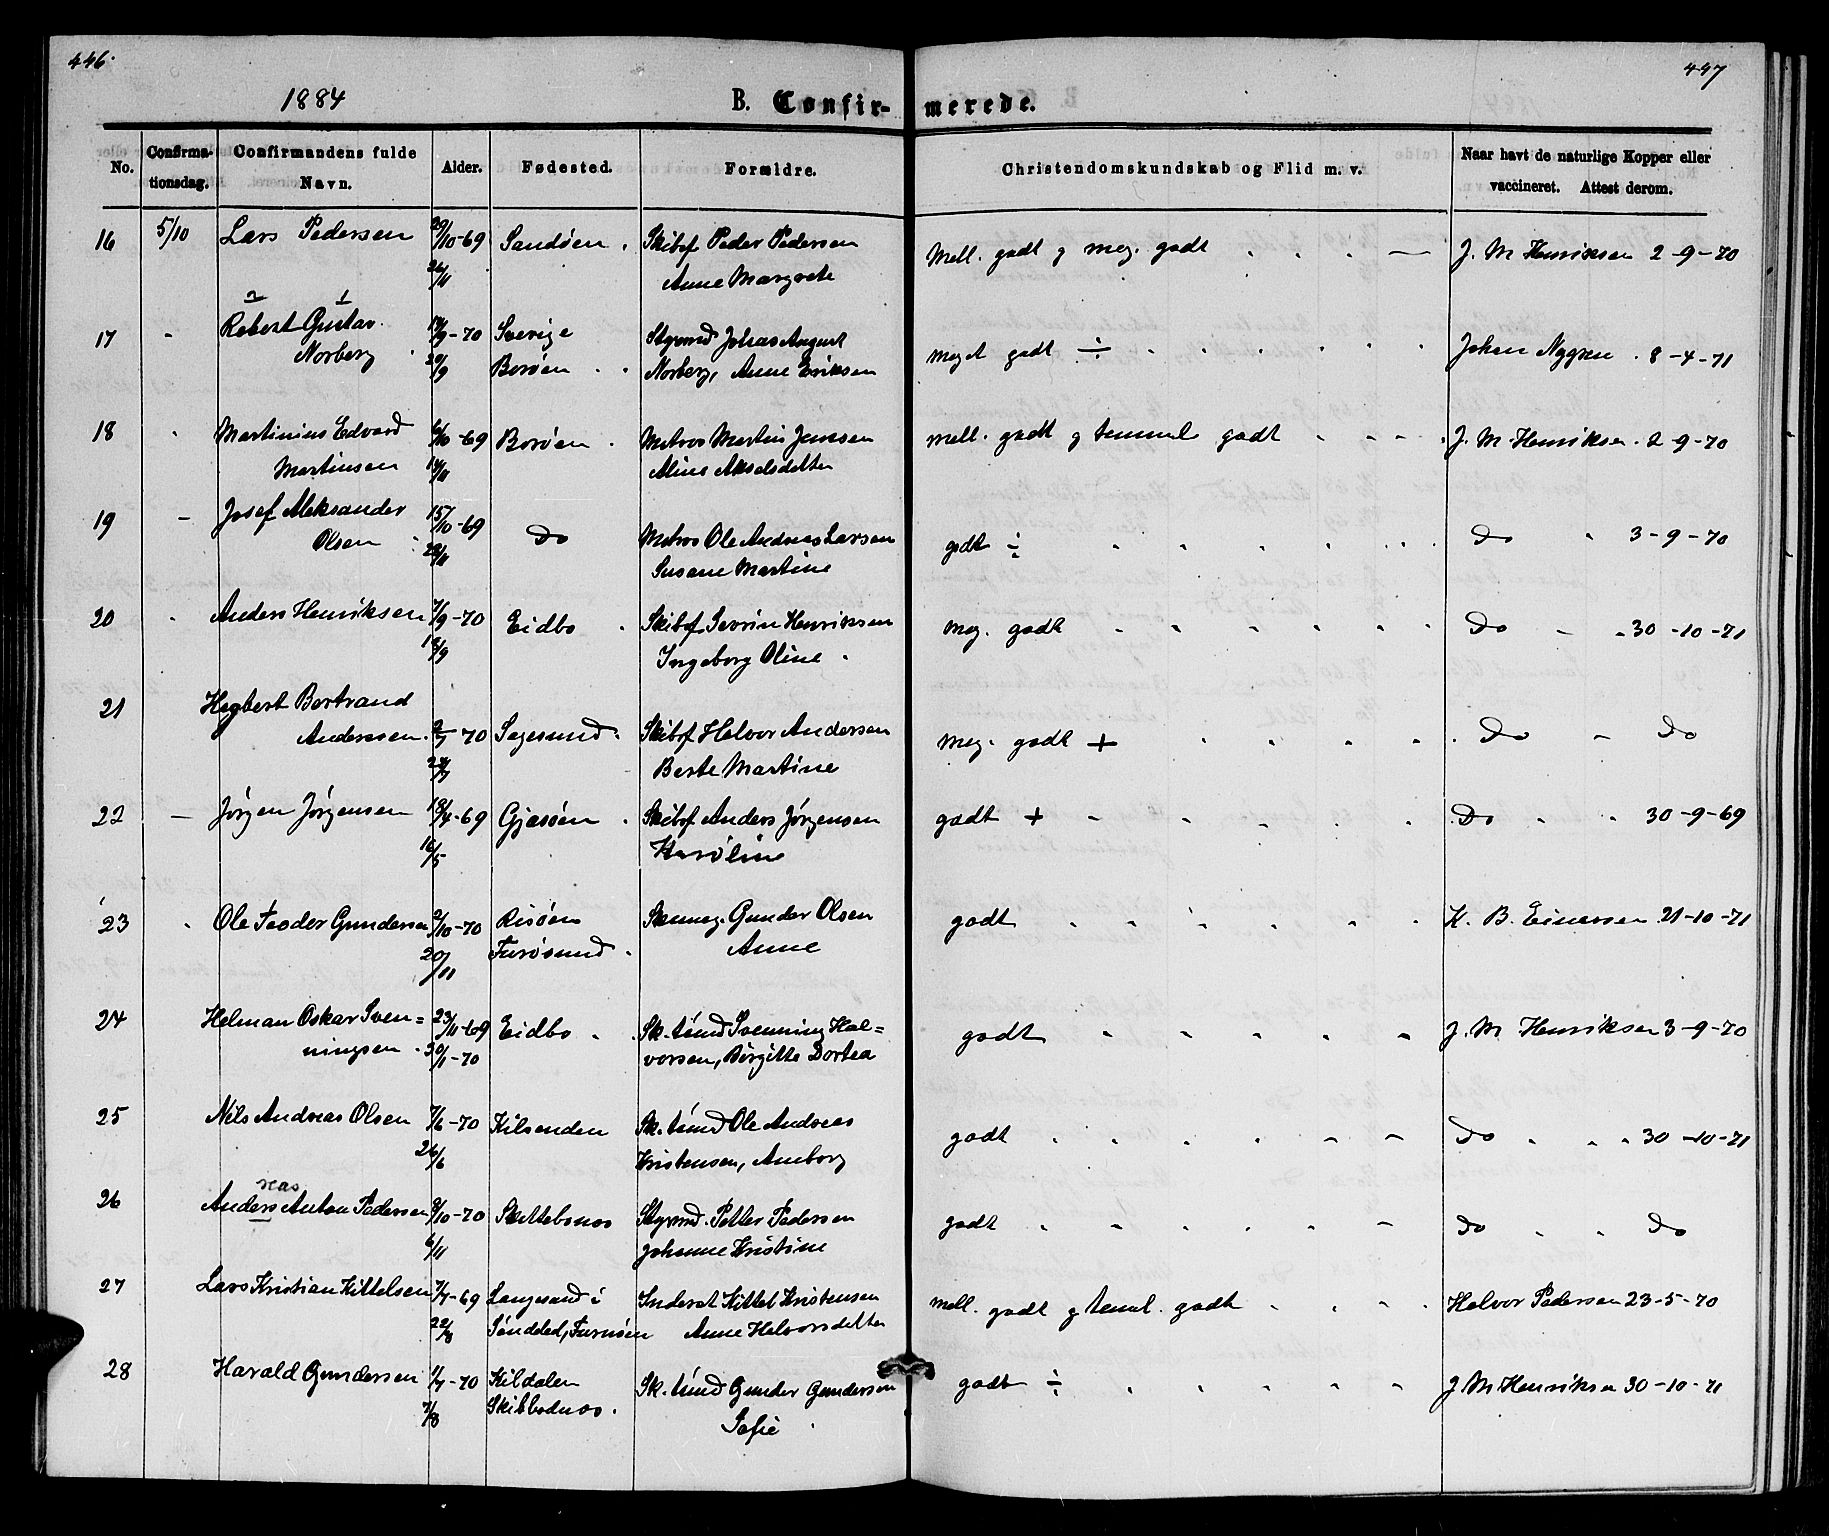 446.
447
1884
B. Confir-
merede.
No.
Confirma-
tionsdag.
Confirmandens fulde
Navn.
Alder.
Fødested.
Forældre.
Christendomskundskab og Flid m. v.
Naar havt de naturlige Kopper eller
vaccineret. Attest derom.
16 5/10 Lars Pedersen 29/10-69 Sandøen. Skibsf Peder Pedersen Mell. godt g meg. godt J. M Henriksen 2-9-70
26/11 Anne Margrete
2 1
17 - Robert Gustav 14/9-70 Sverige Styrmd Johas August meget godt ÷ Johan Nygren 8-4-71
Norberg 20/9 Borøen Norberg, Anne Eriksen
18 Martinius Edvard 6/10-69 Borøen Matros Martin Jensen mell. godt g temmel godt J. M. Henriksen 2-9-70
Martinsen 14/11 Aline Akselsdatter
19 - Josef Aleksander 15/10-69 Do Matros Ole Andreas Larsen godt ÷ Do 3-9-70
Olsen 28/11 Susane Martine
20 Anders Henriksen 7/9-70 Eidbo Skibsf Sevrin Henriksen meg. godt Do 30-10-71
18/9 Ingeborg Oline
21 Hegbert Bertrand
Anderssen 2/7-70 Sagesund Skibsf Halvor Andersen meg. godt + Do Do
24/7 Berte Martine
22 - Jørgen Jørgensen 18/4-69 Gjæsøen Skibsf Anders Jørgensen godt + Do 30-9-69
16/5 Karoline
23 Ole Teodor Gundersen 2/10-70 Risøen Gunder Olsen godt K. B. Einersen 21-10-71
20/11 Furøsund Anne
24 Helman Oskar Sven= 23/11-69 Eidbo Sk. tømd Svenning Hal= godt J. M. Henriksen 3-9-70
ningsen 30/1-70 vorsen, Birgitte Dortea
25 Nils Andreas Olsen 7/6-70 Kilsenden Sk. tømd Ole Andreas godt Do 30-10-71
26/6 Kristensen, Amborg
reas
26 Anders Anton Pedersen 9/10-70 Skottebonos Styrmd. Petter Pedersen godt Do Do
6/11 Johanne Kristine
27 Lars Kristian Kittelsen 7/7-69 Langesand i Inderst Kittel Kristensen mell. godt g teml. godt Halvor Pedersen 23-5-70
22/8 Søndeled, Furuøen Anne Halvorsdatter
28 Harald Gundersen 1/7-70 Kildalen Sk. tømd Gunder Gundersen godt ÷ J M Henriksen 30-10-71
7/8 Skibbodnos. Sofie